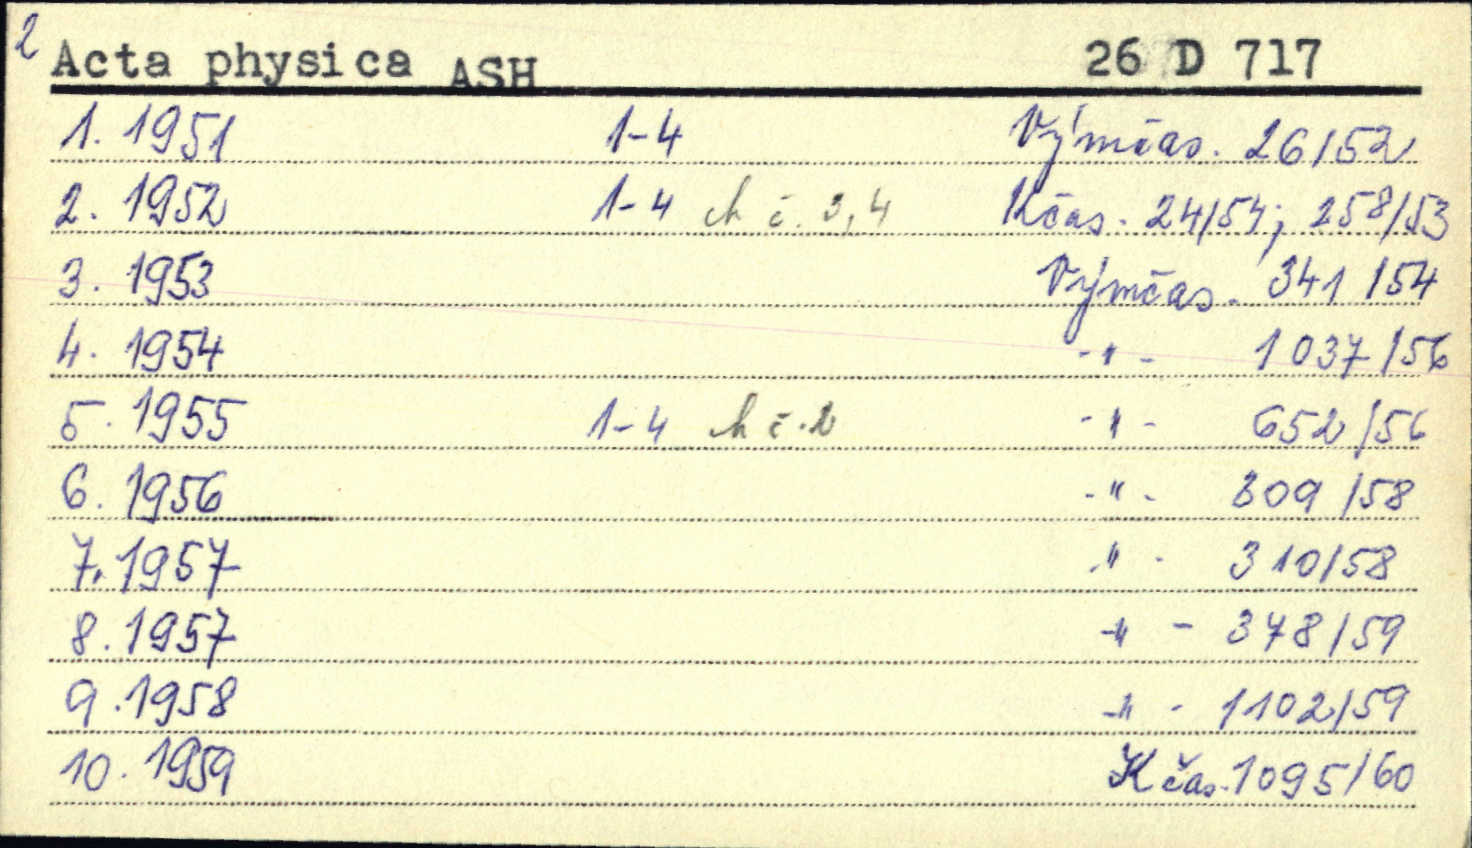 2
Acta physica ASH 26 D 717
1. 1951 1-4 Výmčas. 26/52
2. 1952 1-4 ch č. 3,4 Kčas. 24/54; 258/53
3. 1953 Výmčas. 341/54
4. 1954 -"- 1037/56
5. 1955 1-4 ch č. 2 -"- 652/56
6. 1956 -"- 309/58
7. 1957 -"- 310/58
8. 1957 -"- 378/59
9. 1958 -"- 1102/59
10. 1959 Kčas. 1095/60